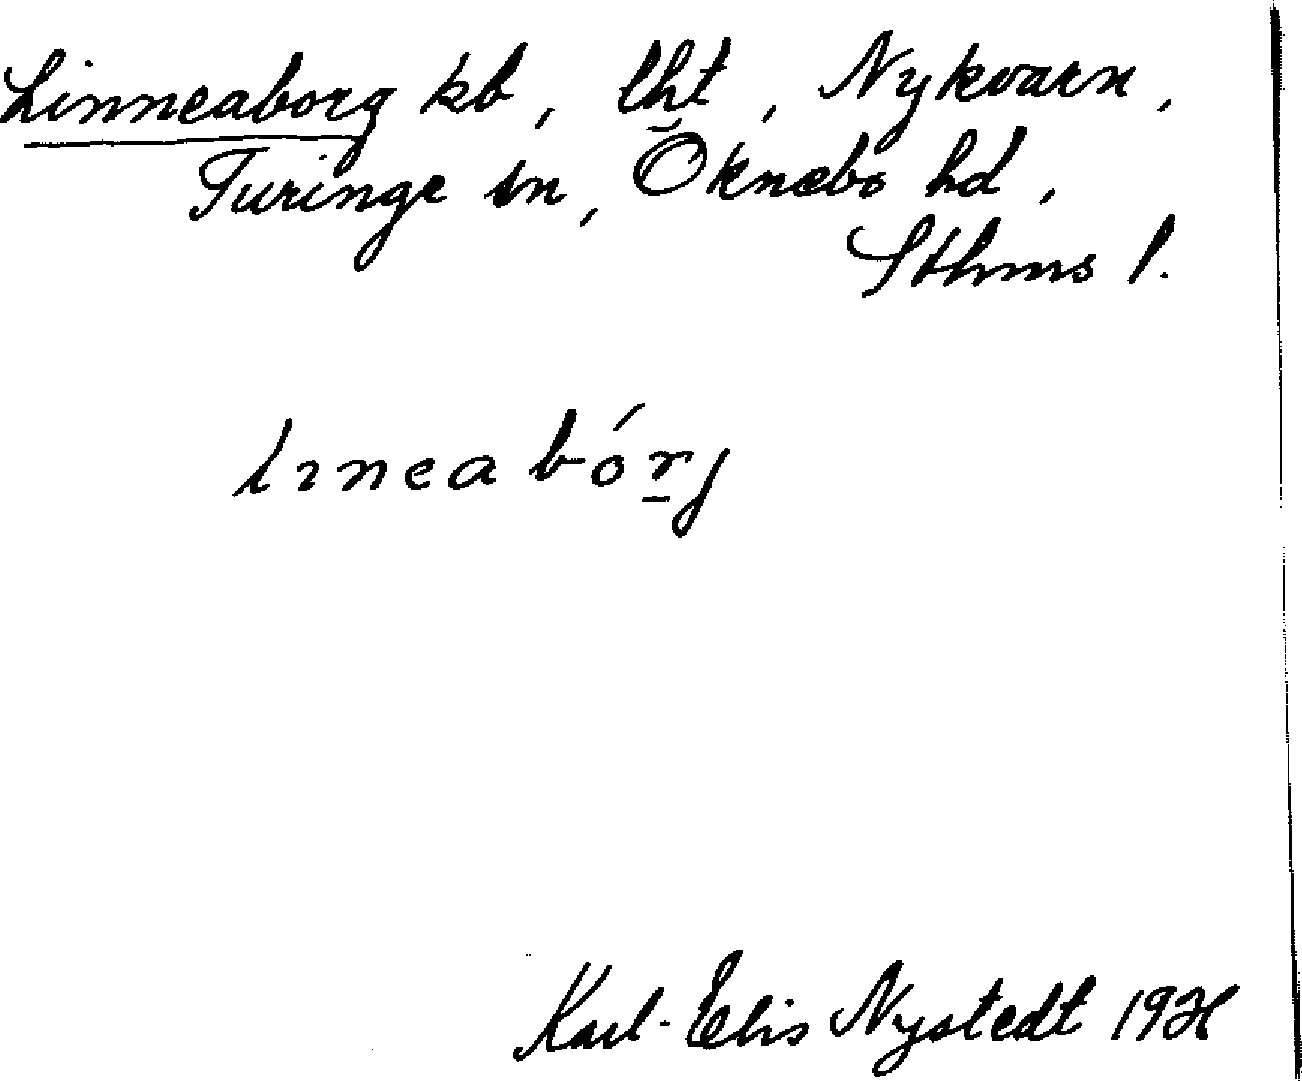 Linneaborg kb, lht, Nykvarn,
Turinge sn, Öknebo hd,
Sthms l.
lıneabórj
Karl-Elis Nystedt